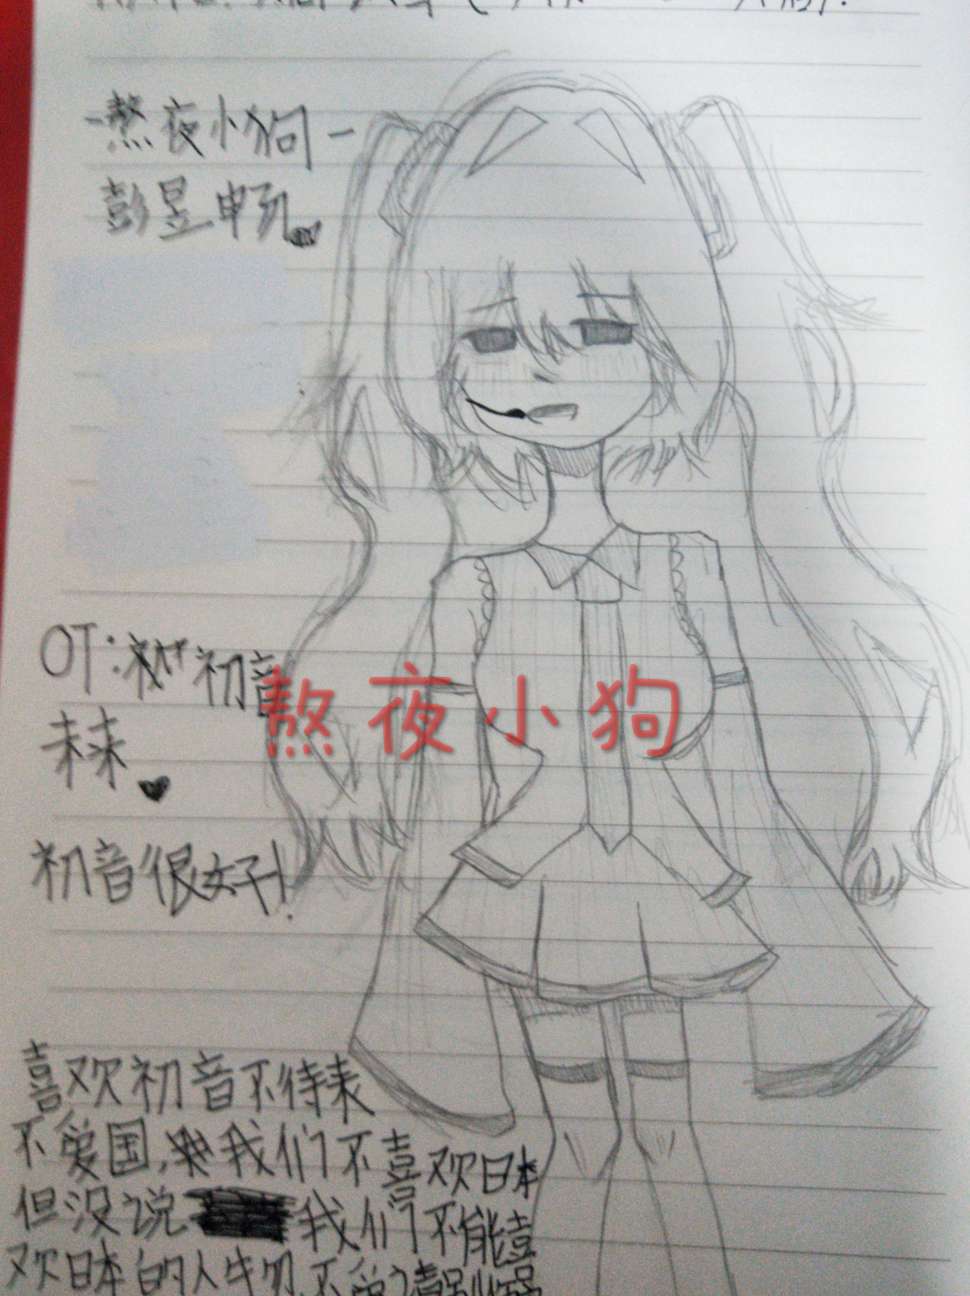 -熬夜小狗-
彭昱畅
OT:初音
未来
熬夜小狗
初音很好!
喜欢初音不待表
不爱国,我们不喜欢日本
但没说我们不能喜
欢日本的人物,不爱请别